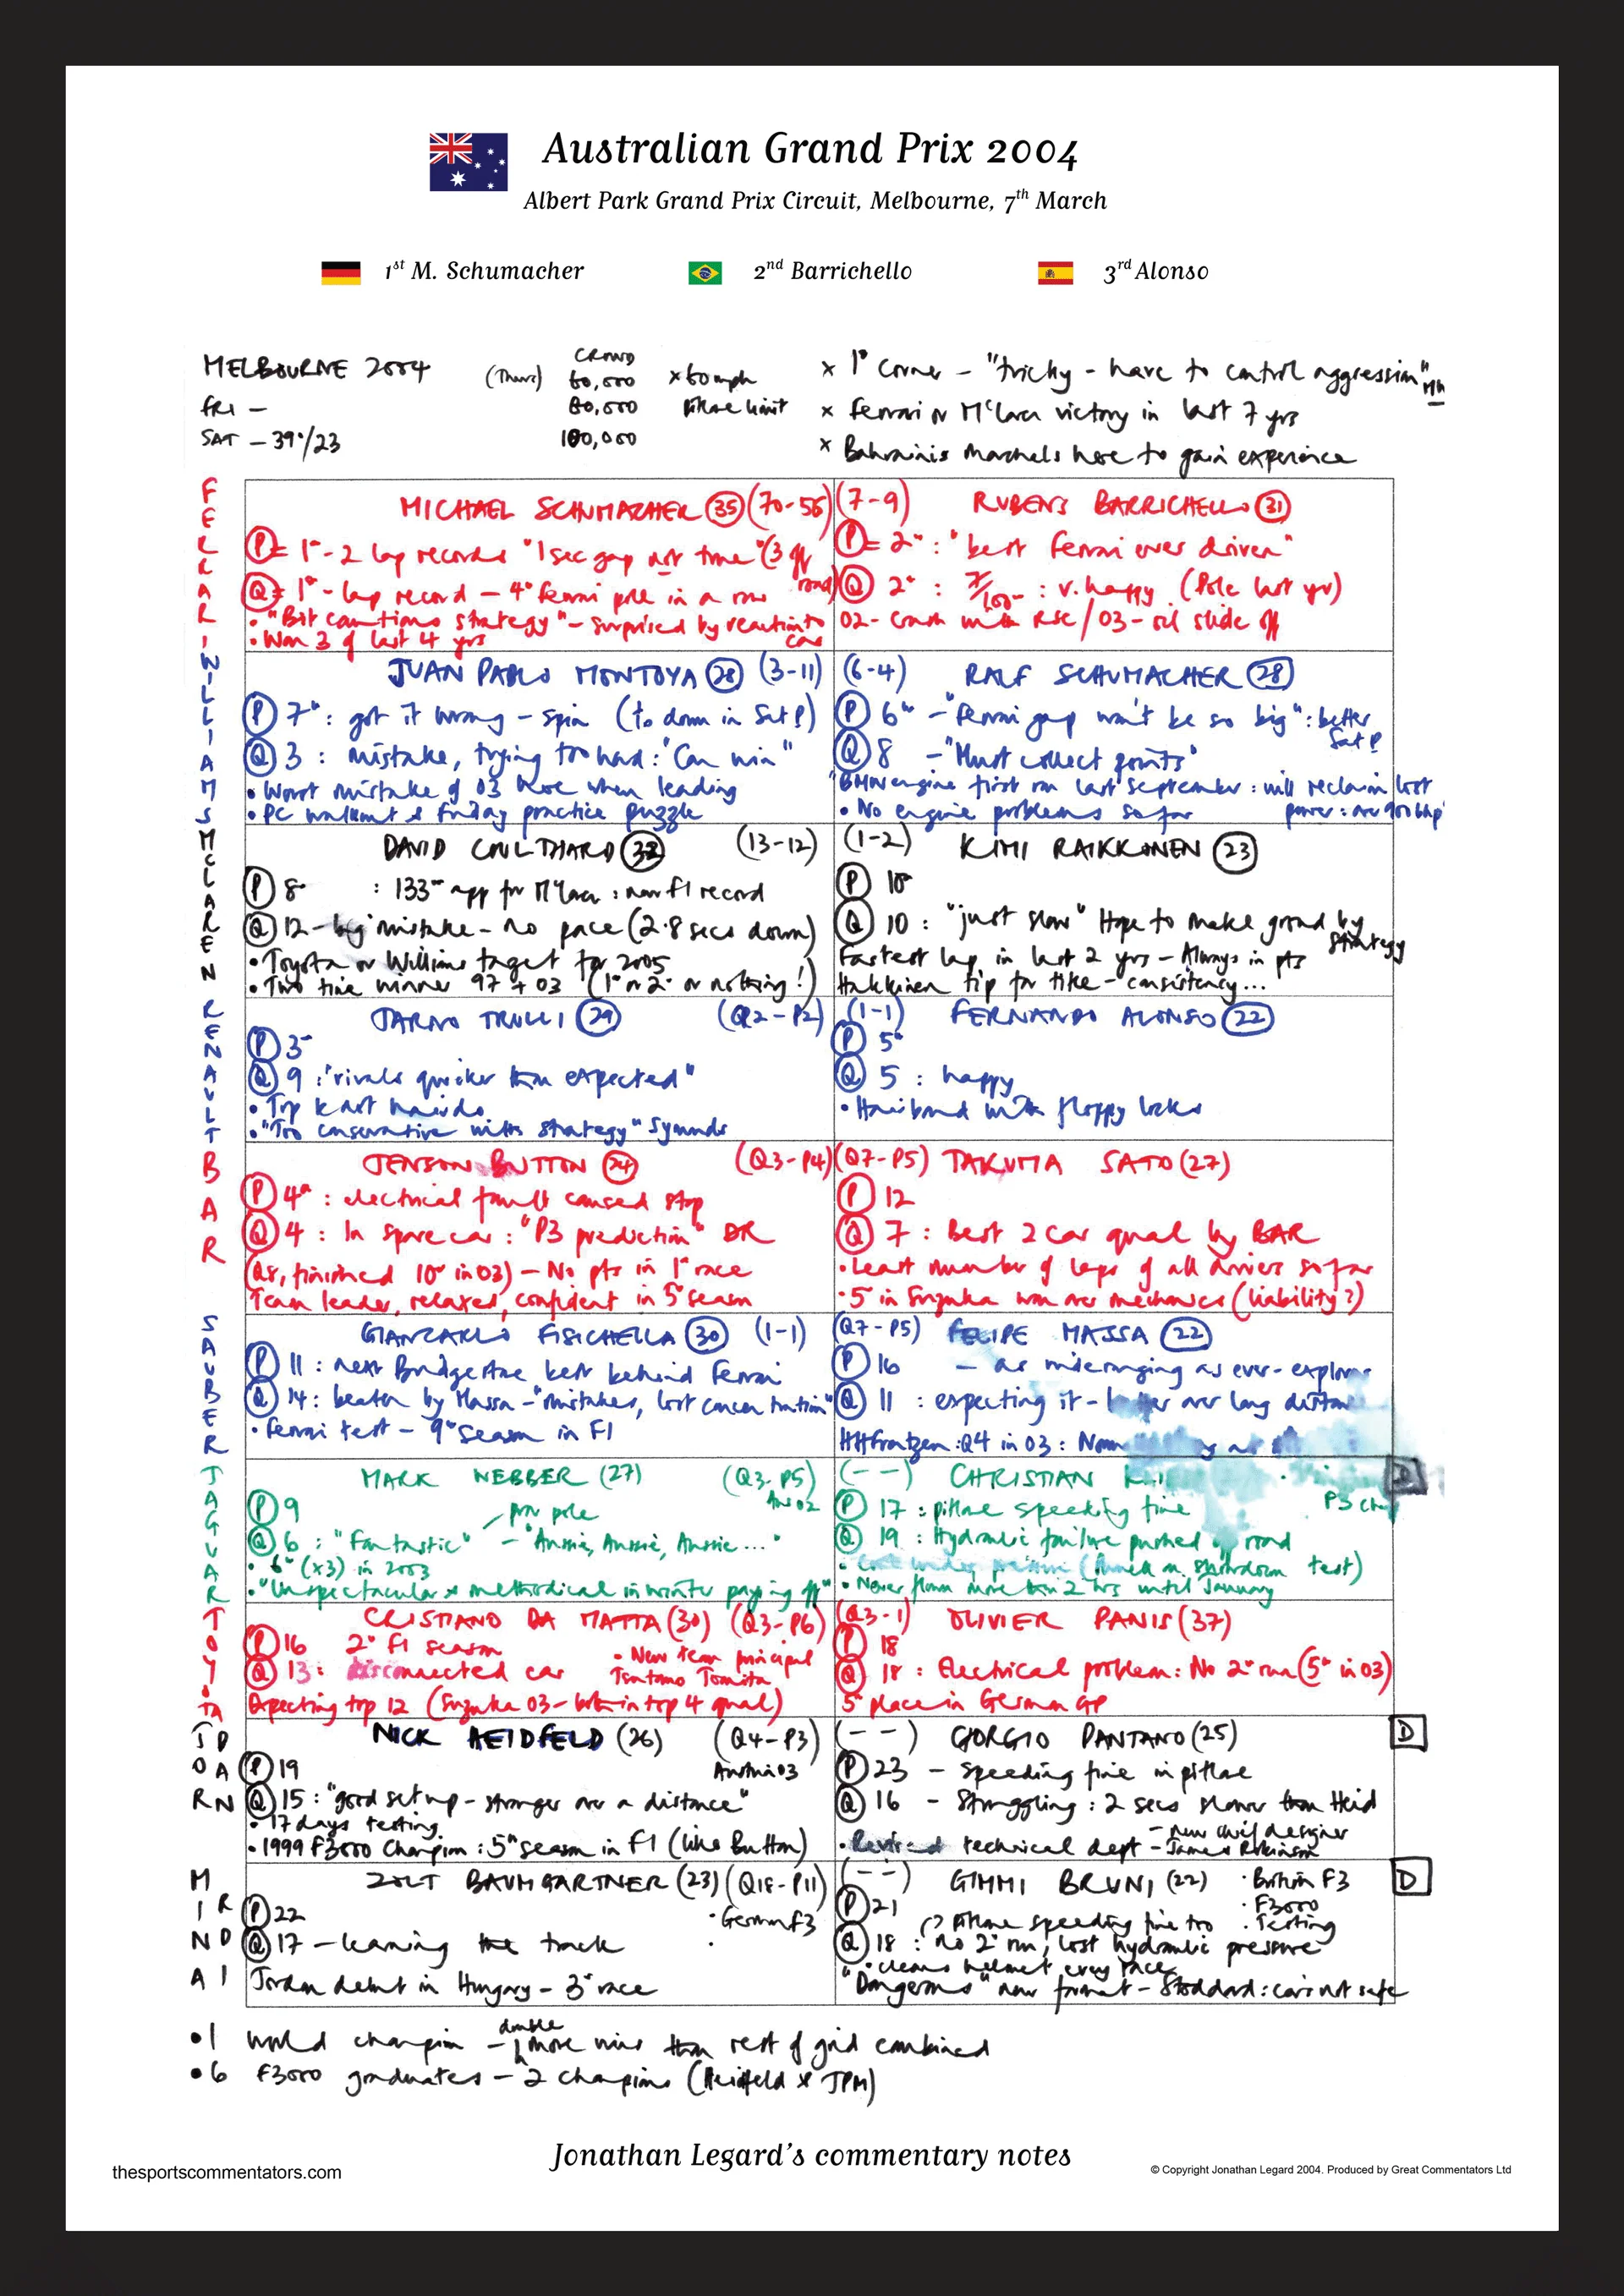 Australian Grand Prix 2004
Albert Park Grand Prix Circuit, Melbourne, 7th March
1st M. Schumacher 2nd Barrichello 3rd Alonso
MELBOURNE 2004 (Thurs) CROWD 60,000 x 60mph pitlane limit
FRI – 80,000
SAT – 39°/23 100,000
x 1st Corner – "tricky – have to control aggression" MW
x Ferrari or McLaren victory in last 7 yrs
x Bahrainis Marshals here to gain experience
FERRARI
MICHAEL SCHUMACHER (35) (70-56)
P = 1st – 2 lap records "1 sec gap not true" (3 off road)
Q = 1st – lap record – 4th Ferrari pole in a row
• "Bit cautious strategy" – surprised by reaction to car
• Won 3 of last 4 yrs
(7-9) RUBENS BARRICHELLO (31)
P = 2nd : "best Ferrari ever driven"
Q 2nd : 7/100 : v. happy (Pole last yr)
02 – crash with RSC / 03 – oil slide off
WILLIAMS
JUAN PABLO MONTOYA (28) (3-11)
P 7th : got it wrong – spin (to down in Sat P)
Q 3 : mistake, trying too hard : "Can win"
• Worst mistake of 03 here when leading
• PC walkout & Friday practice puzzle
(6-4) RALF SCHUMACHER (28)
P 6th – "Ferrari gap won't be so big" : better Sat P
Q 8 – "Must collect points"
"BMW engine first run last September : will reclaim lost power : over 900 bhp
• No engine problems so far
MCLAREN
DAVID COULTHARD (32) (13-12)
P 8th : 133rd app for McLaren : new F1 record
Q 12 – big mistake – no pace (2.8 secs down)
• Toyota or Williams target for 2005
• Two time winner 97 + 03 (1st or 2nd or nothing!)
(1-2) KIMI RAIKKONEN (23)
P 10th
Q 10 : "just slow" Hope to make ground by strategy
Fastest lap in last 2 yrs – Always in pts
Hakkinen tip for title – consistency...
RENAULT
JARNO TRULLI (29) (Q2 – P2)
P 3rd
Q 9 : "rivals quicker than expected"
• Top kart hairdo
• "Too conservative with strategy" Symonds
(1-1) FERNANDO ALONSO (22)
P 5th
Q 5 : happy
• Hairband with floppy locks
BAR
JENSON BUTTON (24) (Q3 – P4)
P 4th : electrical fault caused stop
Q 4 : In spare car : "P3 prediction" DR
(Q8, finished 10th in 03) – No pts in 1st race
Team leader, relaxed, confident in 5th season
(Q7 – P5) TAKUMA SATO (27)
P 12
Q 7 : Best 2 car qual by BAR
• Least number of laps of all drivers so far
• 5th in Suzuka won over mechanics (liability?)
SAUBER
GIANCARLO FISICHELLA (30) (1-1)
P 11 : next Bridgestone best behind Ferrari
Q 14 : beaten by Massa – "mistakes, lost concentration"
• Ferrari test – 9th season in F1
(Q7 – P5) FELIPE MASSA (22)
P 16 – as wideranging as ever – explorer
Q 11 : expecting it – better over long distance
HHFrentzen : Q4 in 03 :
JAGUAR
MARK WEBBER (27) (Q3 – P5) Aus 02
P 9
Q 6 : "Fantastic" – "Aussie, Aussie, Aussie..."
prov pole
• 6th (x3) in 2003
• "Unspectacular & methodical in winter paying off"
(- -) CHRISTIAN D
P 17 : pitlane speeding fine
Q 19 : Hydraulic failure pushed road
test)
• Never flown more than 2 hrs until January
TOYOTA
CRISTIANO DA MATTA (30) (Q3 – P6)
P 16 2nd F1 season
• New team principal Tsutomo Tomita
Q 13 : disconnected car
Expecting top 12 (Suzuka 03 – both in top 4 qual)
(Q3 – 1) OLIVIER PANIS (37)
P 18
Q 18 : Electrical problem : No 2nd run (5th in 03)
5th place in German GP
JORDAN
NICK HEIDFELD (26) (Q4 – P3) Austria 03
P 19
Q 15 : "good set up – stronger over a distance"
• 17 days testing
• 1999 F3000 Champion : 5th season in F1 (like Button)
(- -) GIORGIO PANTANO (25) D
P 23 – Speeding fine in pitlane
Q 16 – Struggling : 2 secs slower than Heid
• Revised technical dept – new chief designer – James Robinson
MINARDI
ZSOLT BAUMGARTNER (23) (Q18 – P11)
P 22
• German F3
Q 17 – learning the track
Jordan debut in Hungary – 3rd race
(- -) GIMMI BRUNI (22) D
• British F3
• F3000
• Testing
P 21
(? pitlane speeding fine too
Q 18 : no 2nd run, lost hydraulic pressure
• cleans helmet every race
"Dangerous" new format – Stoddard : cars not safe
• 1 world champion – double more wins than rest of grid combined
• 6 F3000 graduates – 2 champions (Heidfeld & JPM)
Jonathan Legard's commentary notes
thesportscommentators.com
© Copyright Jonathan Legard 2004. Produced by Great Commentators Ltd